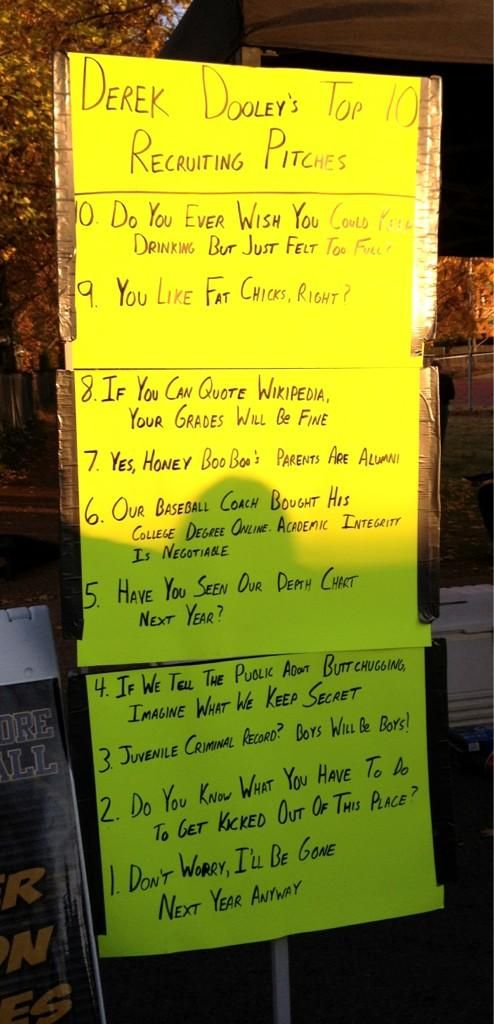 DEREK DOOLEY'S TOP 10
RECRUITING PITCHES
10. DO YOU EVER WISH YOU COULD KEEP
DRINKING BUT JUST FELT TOO FULL?
9. YOU LIKE FAT CHICKS, RIGHT?
8. IF YOU CAN QUOTE WIKIPEDIA,
YOUR GRADES WILL BE FINE
7. YES, HONEY BOO BOO'S PARENTS ARE ALUMNI
6. OUR BASEBALL COACH BOUGHT HIS
COLLEGE DEGREE ONLINE. ACADEMIC INTEGRITY
IS NEGOTIABLE
5. HAVE YOU SEEN OUR DEPTH CHART
NEXT YEAR?
4. IF WE TELL THE PUBLIC ABOUT BUTTCHUGGING,
IMAGINE WHAT WE KEEP SECRET
3. JUVENILE CRIMINAL RECORD? BOYS WILL BE BOYS!
2. DO YOU KNOW WHAT YOU HAVE TO DO
TO GET KICKED OUT OF THIS PLACE?
1. DON'T WORRY, I'LL BE GONE
NEXT YEAR ANYWAY
ORE
ALL
ER
ON
ES